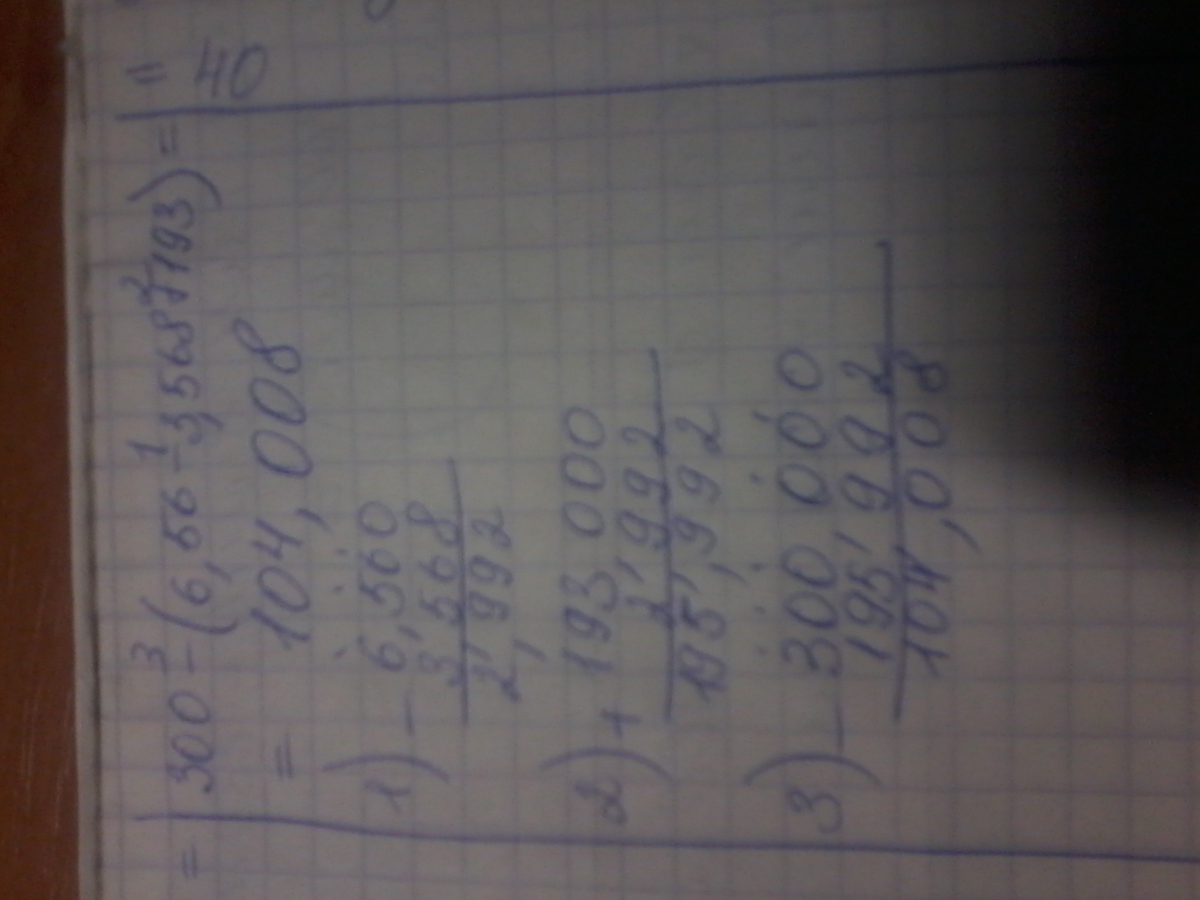 =
300 - (6,56 - 3,568 + 193) =
3 1 2
= 104,008
1) - 6,560
3,568
2,992
2) + 193,000
2,992
195,992
3) - 300 000
195,992
104,008
=
40